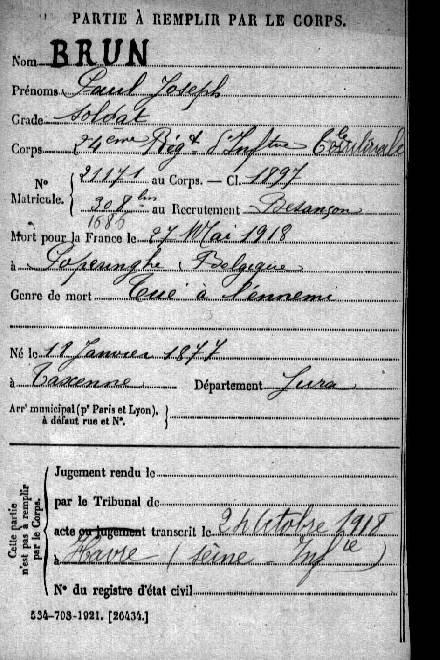 PARTIE À REMPLIR PAR LE CORPS.
Nom BRUN
Prénoms Paul Joseph
Grade Soldat
Corps 24ème Rég.t d'Inf.trie Coloniale
N° Matricule. 21171 au Corps. — Cl. 1897
308 bis au Recrutement Besançon
1685
Mort pour la France le 27 Mai 1918
à Poperinghe Belgique
Genre de mort Tué à l'ennemi
Né le 18 Janvier 1877
à Taxenne Département Jura
Arr.t municipal (p.r Paris et Lyon), à défaut rue et N°.
Cette partie n'est pas à remplir par le Corps.
Jugement rendu le
par le Tribunal de
acte ou jugement transcrit le 24 Octobre 1918
à Havre (Seine Inf.re)
N° du registre d'état civil
534-708-1921. [26434.]